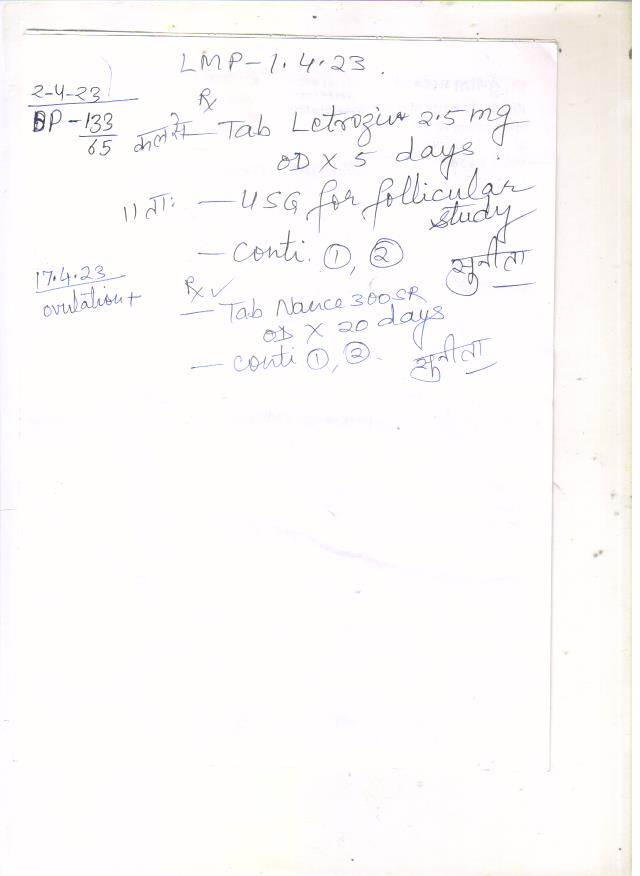 LMP - 1.4.23.
2-4-23
Rx
BP - 133/65
कल से — Tab Letroziv 2.5 mg
OD X 5 days.
11 ताः — USG for follicular
study
— conti. ①, ②
सुनीता
17.4.23
ovulation +
Rx ✓
— Tab Nance 300 SR
OD X 20 days
— conti ①, ②.
सुनीता